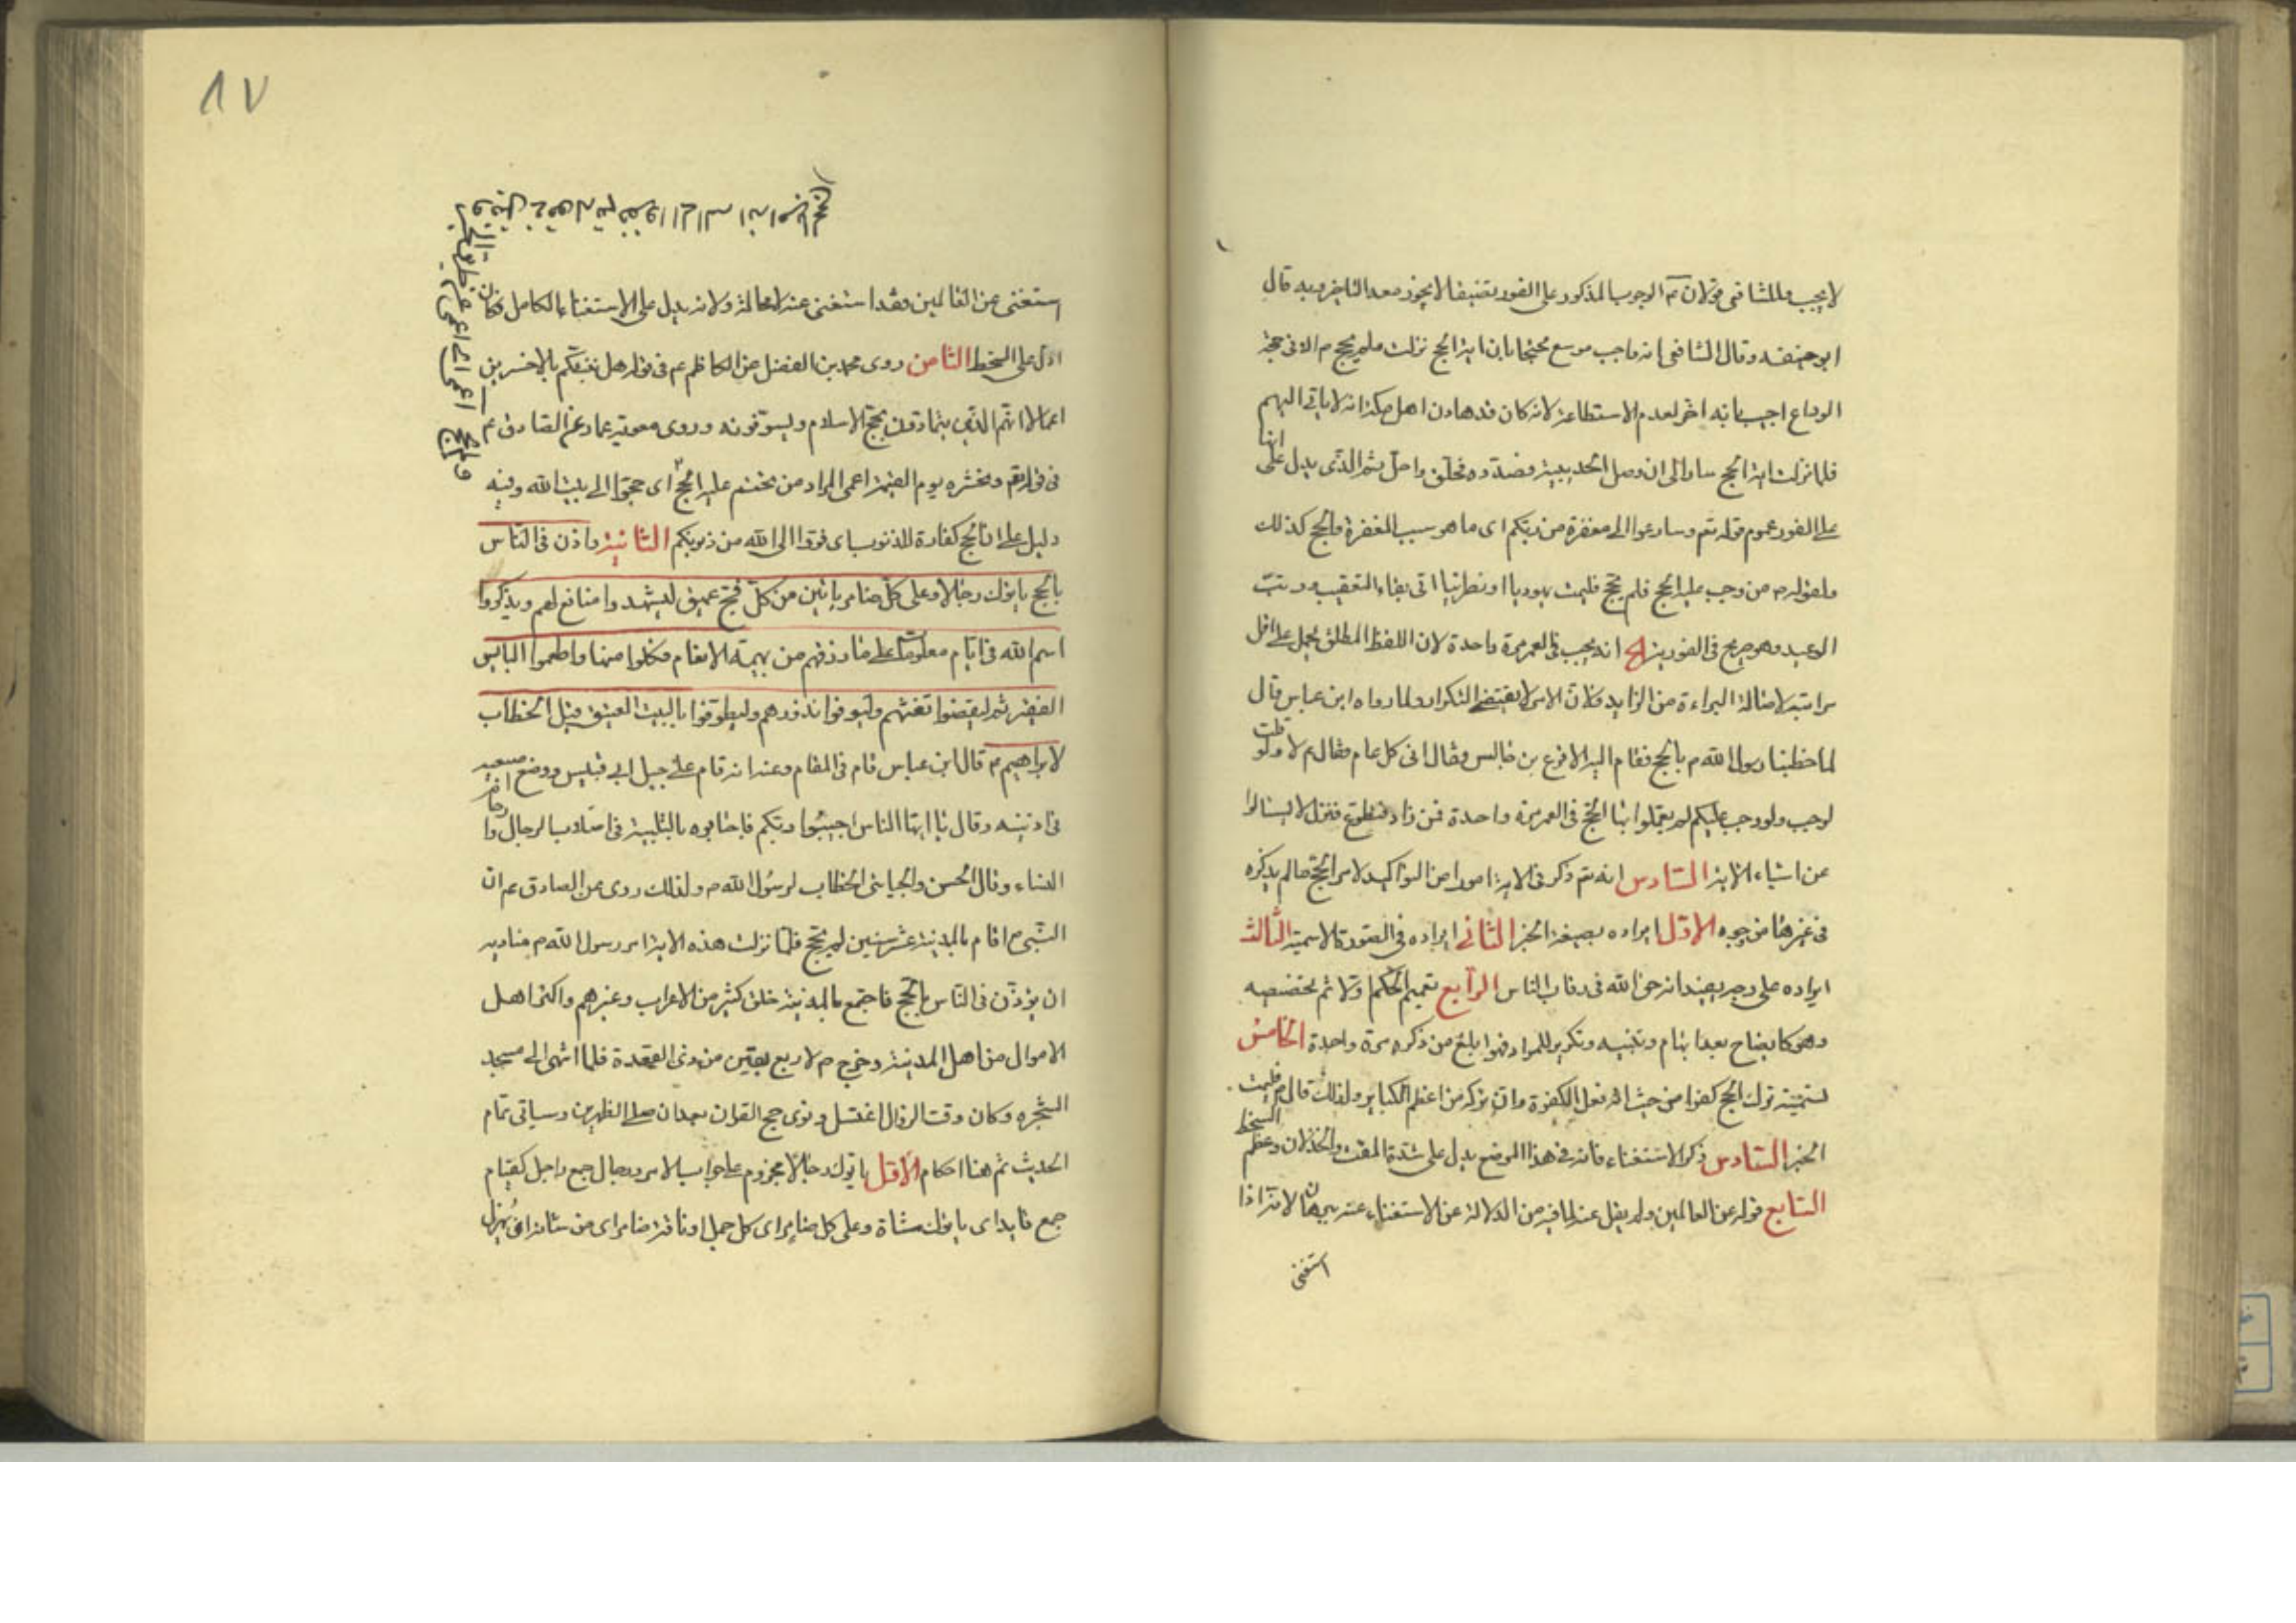 لا يجب وللشافعي قولان مَه الوجوب المذكور على الفور تضيقا لا يجوز معه التاخير وبه قال
ابو حنيفه وقال الشافعي انه واجب موسع محتجا بان اية الحج نزلت ولم يحج م الا في حجة
الوداع اجيب بانه اخر لعدم الاستطاعة لانه كان قد هادن اهل مكة انه لا ياتي اليهم
فلما نزلت اية الحج سار الى ان وصل الحديبية وضدوه فحلق واحل ثم الذى يدل على انها
على الفور عموم قوله تع وسارعوا الى مغفرة من ربكم اى ما هو سبب المغفرة والحج كذلك
ولقوله م من وجب عليه الحج فلم يحج فليمت يهوديا او نصرانيا اتى بفاء التعقيب ورتب
الوعيد وهو صريح في الفورية انه يجب في العمر مرة واحدة لان اللفظ المطلق يحمل على اقل
مراتبه لاصالة البراءة من الزايد ولان الامر لا يقتضى التكرار ولما رواه ابن عباس قال
لما خطبنا رسول الله م بالحج فقام اليه الاقرع بن حابس فقال افى كل عام فقال م لا ولو قلت
لوجب ولو وجب عليكم لم تعملوا بها الحج فى العمر مرة واحدة فمن زاد فتطوع فنزل لا تسالوا
عن اشياء الاية السّادس انه تع ذكر في الاية امورا من التواكيد لامر الحج ما لم يذكره
فى غيرها من وجوه الاوّل ايراده بصيغة الخبر الثانى ايراده فى الصورة الاسمية الثالث
ايراده على وجه يفيد انه حق الله فى رقاب الناس الرّابع تعميم الحكم اولا ثم تخصيصه
وهو كايضاح بعد ابهام وتثنيه وتكرير للمراد فهو ابلغ من ذكره مرة واحدة الخامس
تسمية ترك الحج كفرا من حيث انه فعل الكفرة وان تركه من اعظم الكباير ولذلك قال م فليمت
الخبر السّادس ذكر الاستغناء فانه في هذا الموضع يدل على شدة المقت والخذلان وعظم السخط
السّابع قوله عن العالمين ولم يقل عنه لما فيه من الدلالة عن الاستغناء عنه ببرهان لانه اذا
استغنى
٨٧
استغنى عن العالمين فقد استغنى عنه لا محالة ولانه يدل على الاستغناء الكامل فكان
ادل على السخط الثامن روى محمد بن الفضيل عن الكاظم عم فى قوله هل ننبئكم بالاخسرين
اعمالا انهم الذين يتمادون بحج الاسلام ويسوفونه وروى معوية بن عمار عن الصادق عم
فى قوله تع ونحشره يوم القيمة اعمى المراد من تحتم عليه الحج اى حجوا الى بيت الله وفيه
دليل على ان الحج كفارة للذنوب اى ففروا الى الله من ذنوبكم الثانية واذن فى النّاس
بالحج ياتوك رجالا وعلى كلّ ضامر ياتين من كلّ فجّ عميق ليشهدوا منافع لهم ويذكروا
اسم الله فى ايّام معلومات على ما رزقهم من بهيمة الانعام فكلوا منها واطعموا البايس
الفقير ثم ليقضوا تفثهم وليوفوا نذورهم وليطوّفوا بالبيت العتيق قيل الخطاب
لابراهيم م قال ابن عباس قام فى المقام وعنه انه قام على جبل ابي قبيس ووضع اصبعيه
فى اذنيه وقال يا ايها الناس اجيبُوا ربّكم فاجابوه بالتلبية فى اصلاب الرجال وارحام
النساء وقال الحسن والجبائى الخطاب لرسول الله م ولذلك روى عن الصادق عم ان
النبى م اقام بالمدينة عشر سنين لم يحج فلما نزلت هذه الاية امر رسول الله م مناديه
ان يؤذّن فى النّاس بالحجّ فاجتمع بالمدينة خلق كثير من الاعراب وغيرهم واكثر اهل
الاموال من اهل المدينة وخرج م لاربع بقين من ذى القعدة فلما انتهى الى مسجد
الشجره وكان وقت الزوال اغتسل ونوى حج القران بعد ان صلى الظهرين وسياتى تمام
الحديث ثم هنا احكام الاوّل ياتوك رجالا مجزوم على جواب الامر ورجال جمع راجل كقيام
جمع قايم اى ياتوك مشاة وعلى كل ضامر اى كل جمل او ناقة ضامر اى من شانه ان يُهزل